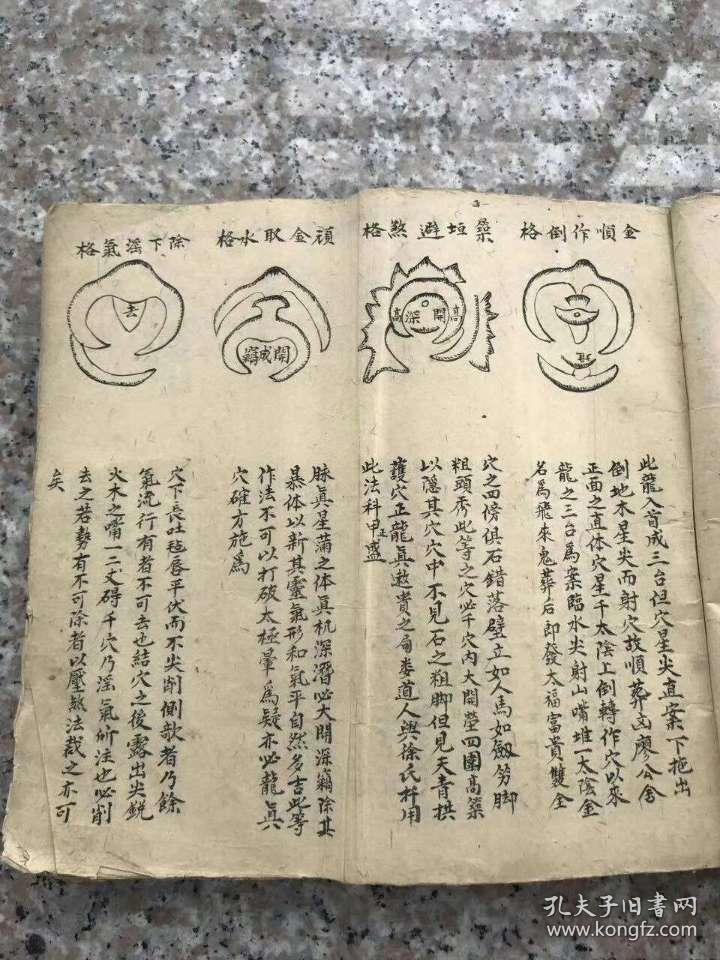 金順作倒格
堆
此龍入首成三台但穴星尖直案下拖出
倒地木星尖而射穴故順葬凶廖公舍
正面之直体穴星千太陰上倒轉作穴以來
龍之三台為案臨水尖射山嘴堆一太陰金
名為飛來鬼葬后即發大福富貴雙全
築垣避煞格
高深開高
穴之四傍俱石錯落壁立如人馬如劔笏脚
粗頭秀此等之穴必千穴內大開塋四圍高築
以隱其穴穴中不見石之粗脚但見天青拱
護穴正龍真煞貴之局娄道人與徐氏杆用
此法科甲正盛
頑金取水格
開成窩
脉真星蒲之体真机深潛必大開深窩除其
暴体以新其靈氣形和氣平自然多吉此等
作法不可以打破太極暈為疑亦必龍真
穴確方施為
除下滛氣格
去
穴下長吐毡唇平伏而不尖削側欹者乃餘
氣流行有者不可去也結穴之後露出尖銳
火木之嘴一二丈碍千穴乃滛氣所注也必削
去之若勢有不可除者以壓煞法裁之亦可
矣
孔夫子旧書网
www.kongfz.com